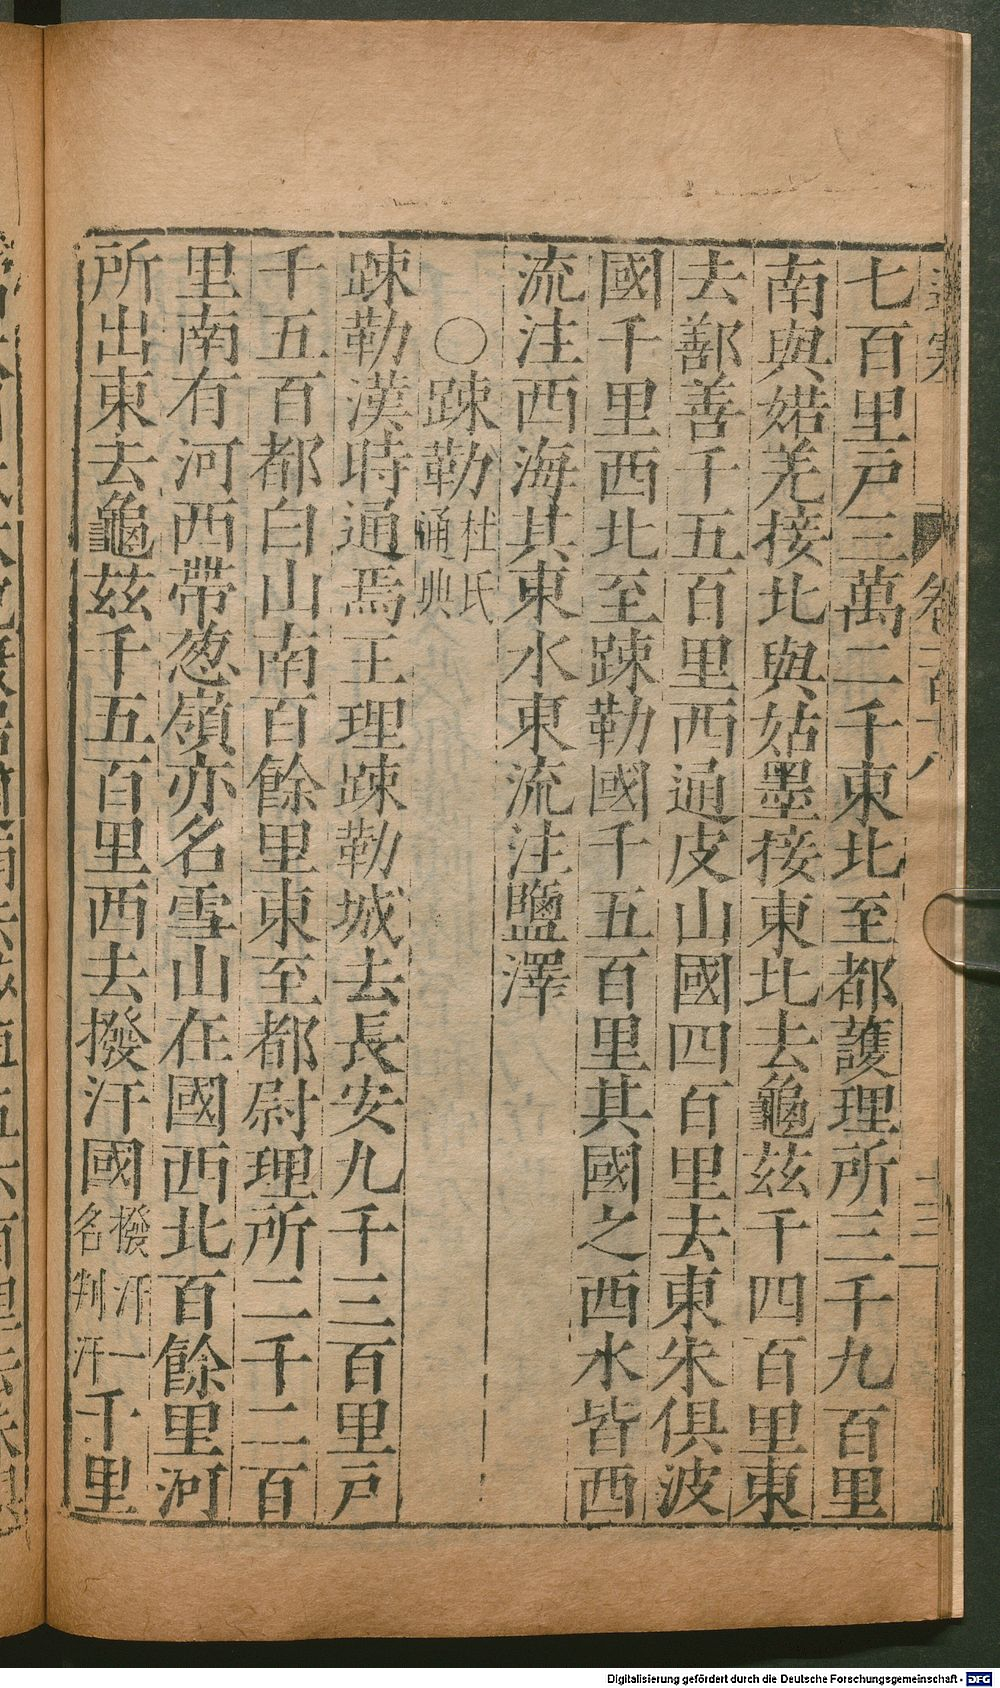 七百里戸三萬二千東北至都護理所三千九百里
南與婼羌接北與姑墨接東北去龜茲千四百里東
去鄯善千五百里西通皮山國四百里去東朱俱波
國千里西北至踈勒國千五百里其國之西水皆西
流注西海其東水東流注鹽澤
〇踈勒杜氏通典
踈勒漢時通焉王理踈勒城去長安九千三百里戸
千五百都白山南百餘里東至都尉理所二千二百
里南有河西帶葱嶺亦名雪山在國西北百餘里河
所出東去龜茲千五百里西去撥汗國撥汗一名判汗千里
Digitalisierung gefördert durch die Deutsche Forschungsgemeinschaft - DFG